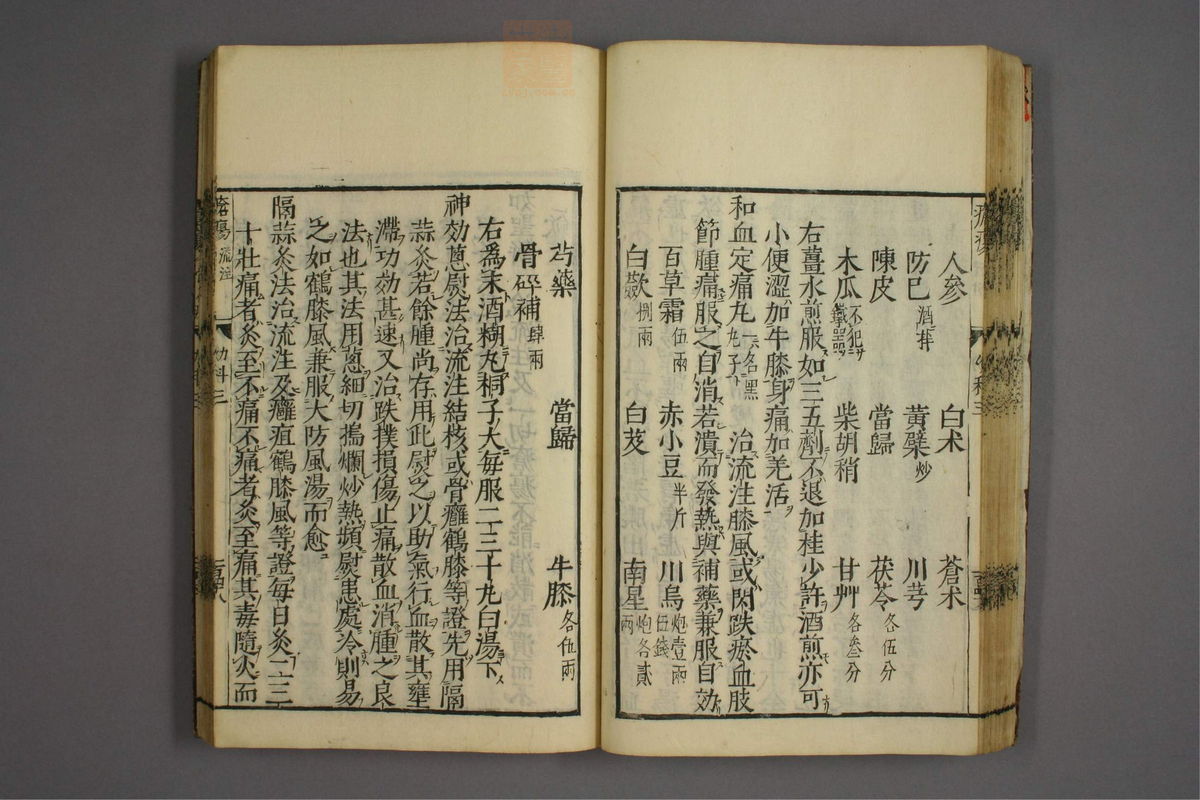 人參 白朮 蒼朮
防巳酒拌 黃檗炒 川芎
陳皮 當歸 茯苓各伍分
木瓜不犯鐵器 柴胡稍 甘艸各叁分
右薑水煎服如三五劑不退加桂少許酒煎亦可
小便澀加牛膝身痛加羌活
和血定痛丸一名黑丸子 治流注膝風或閃跌瘀血肢
節腫痛服之自消若潰而發熱與補藥兼服自効
百草霜伍兩 赤小豆半斤 川烏炮壹兩伍錢
白斂捌兩 白芨 南星炮各貳兩
芍藥 當歸 牛膝各伍兩
骨碎補肆兩
右爲末酒糊丸桐子大每服二三十丸白湯下
神効蔥熨法治流注結核或骨癰鶴膝等證先用隔
蒜灸若餘腫尚存用此熨之以助氣行血散其壅
滯功効甚速又治跌撲損傷止痛散血消腫之良
法也其法用蔥細切搗爛炒熱頻熨患處冷則易
之如鶴膝風兼服大防風湯而愈
隔蒜灸法治流注及癰疽鶴膝風等證每日灸二三
十壯痛者灸至不痛不痛者灸至痛其毒隨火而
瘡瘍 流注 幼科三